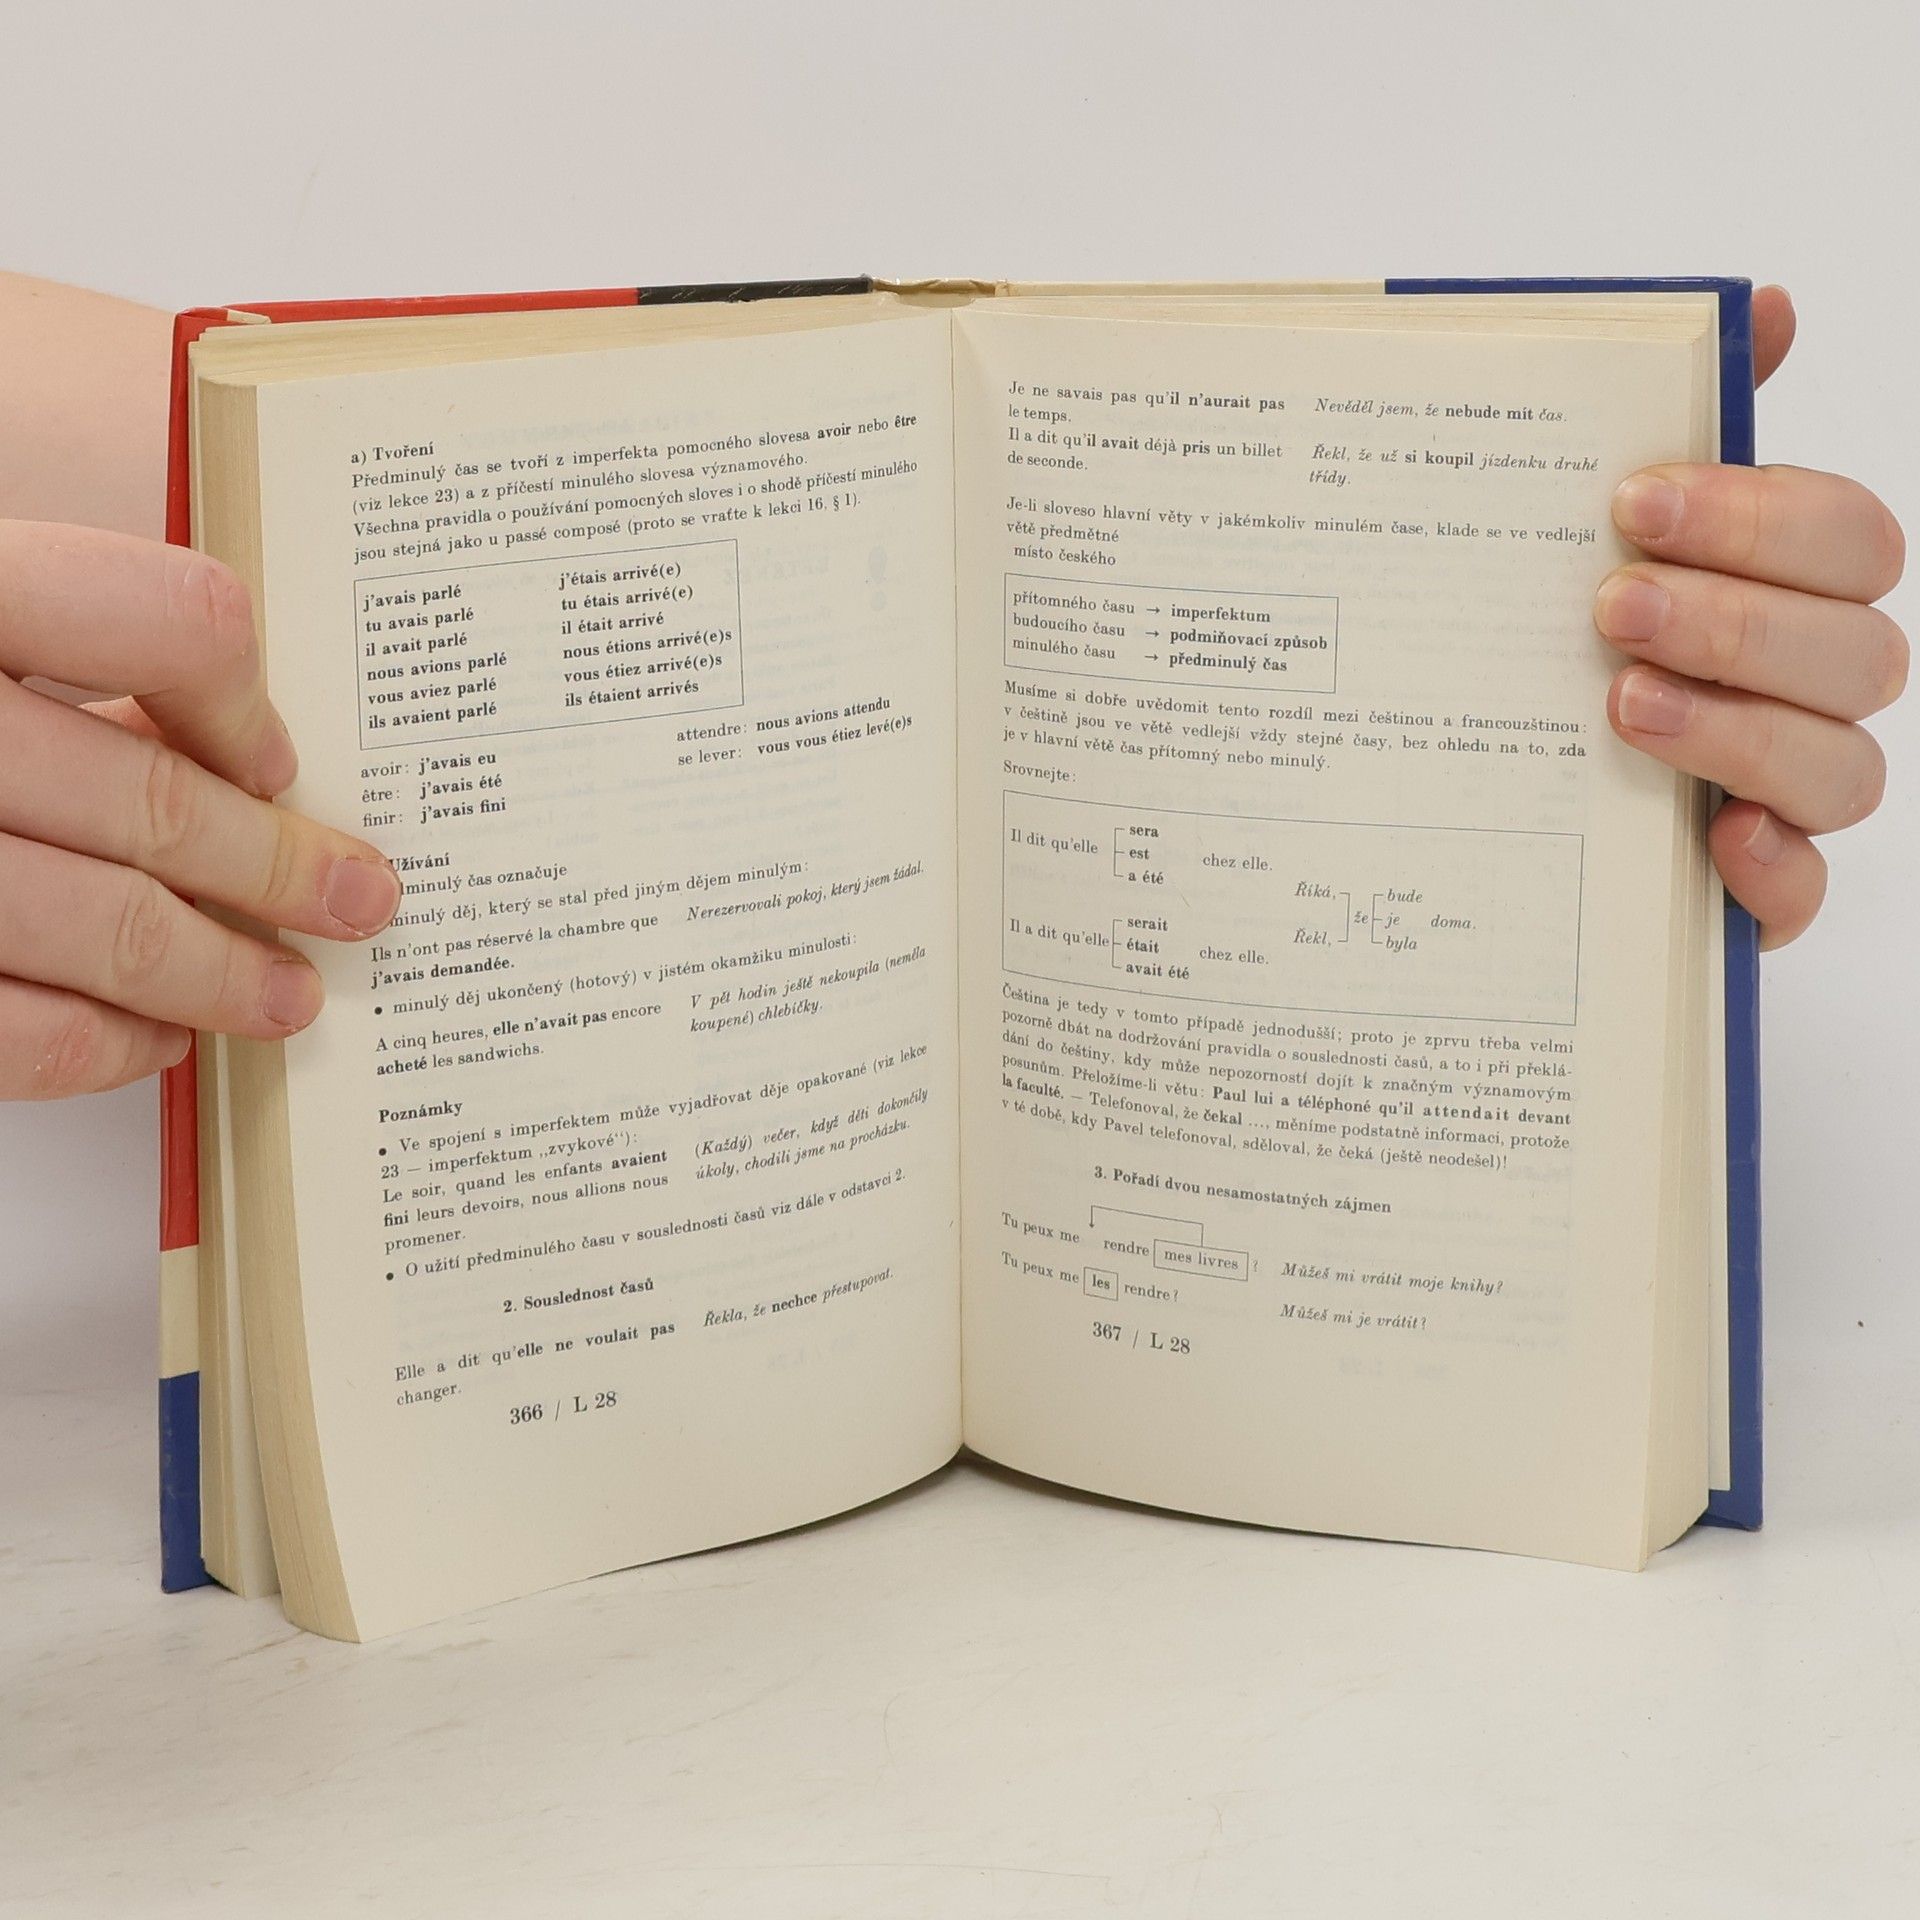 a) Tvoření
Předminulý čas se tvoří z imperfekta pomocného slovesa avoir nebo être
(viz lekce 23) a z příčestí minulého slovesa významového.
Všechna pravidla o používání pomocných sloves i o shodě příčestí minulého
jsou stejná jako u passé composé (proto se vraťte k lekci 16, § 1).
j'avais parlé j'étais arrivé(e)
tu avais parlé tu étais arrivé(e)
il avait parlé il était arrivé
nous avions parlé nous étions arrivé(e)s
vous aviez parlé vous étiez arrivé(e)s
ils avaient parlé ils étaient arrivés
avoir: j'avais eu attendre: nous avions attendu
être: j'avais été se lever: vous vous étiez levé(e)s
finir: j'avais fini
Užívání
minulý čas označuje
minulý děj, který se stal před jiným dějem minulým:
Ils n'ont pas réservé la chambre que Nerezervovali pokoj, který jsem žádal.
j'avais demandée.
• minulý děj ukončený (hotový) v jistém okamžiku minulosti:
A cinq heures, elle n'avait pas encore V pět hodin ještě nekoupila (neměla
acheté les sandwichs. koupené) chlebíčky.
Poznámky
• Ve spojení s imperfektem může vyjadřovat děje opakované (viz lekce
23 — imperfektum „zvykové“):
Le soir, quand les enfants avaient (Každý) večer, když děti dokončily
fini leurs devoirs, nous allions nous úkoly, chodili jsme na procházku.
promener.
• O užití předminulého času v souslednosti časů viz dále v odstavci 2.
2. Souslednost časů
Elle a dit qu'elle ne voulait pas Řekla, že nechce přestupovat.
changer.
366 / L 28
Je ne savais pas qu'il n'aurait pas Nevěděl jsem, že nebude mít čas.
le temps.
Il a dit qu'il avait déjà pris un billet Řekl, že už si koupil jízdenku druhé
de seconde. třídy.
Je-li sloveso hlavní věty v jakémkoliv minulém čase, klade se ve vedlejší
větě předmětné
místo českého
přítomného času → imperfektum
budoucího času → podmiňovací způsob
minulého času → předminulý čas
Musíme si dobře uvědomit tento rozdíl mezi češtinou a francouzštinou:
v češtině jsou ve větě vedlejší vždy stejné časy, bez ohledu na to, zda
je v hlavní větě čas přítomný nebo minulý.
Srovnejte:
sera
Il dit qu'elle est chez elle.
a été
Říká, bude
že je doma.
Řekl, byla
serait
Il a dit qu'elle était chez elle.
avait été
Čeština je tedy v tomto případě jednodušší; proto je zprvu třeba velmi
pozorně dbát na dodržování pravidla o souslednosti časů, a to i při překlá-
dání do češtiny, kdy může nepozorností dojít k značným významovým
posunům. Přeložíme-li větu: Paul lui a téléphoné qu'il attendait devant
la faculté. — Telefonoval, že čekal ..., měníme podstatně informaci, protože
v té době, kdy Pavel telefonoval, sděloval, že čeká (ještě neodešel)!
3. Pořadí dvou nesamostatných zájmen
Tu peux me rendre mes livres ? Můžeš mi vrátit moje knihy?
Tu peux me les rendre? Můžeš mi je vrátit?
367 / L 28